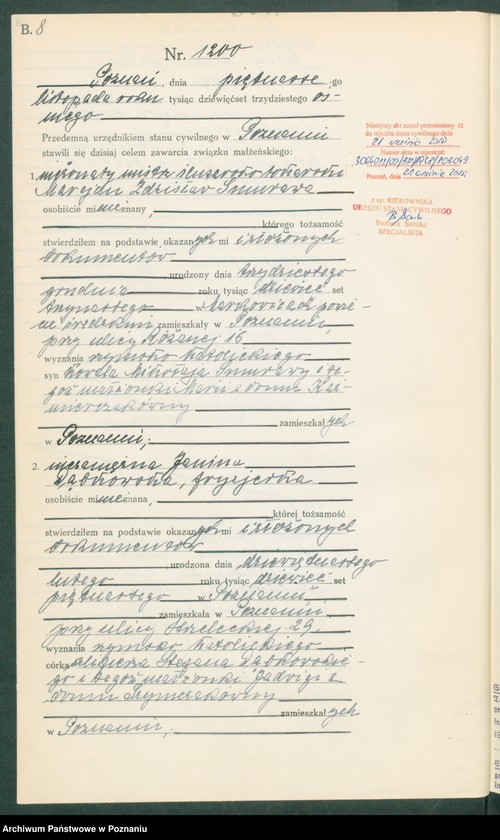 B. 8
Nr. 1200
Poznań, dnia piętnaste -go
listopada roku tysiąc dziewięćset trzydziestego ós-
mego
Przedemną urzędnikiem stanu cywilnego w Poznaniu
stawili się dzisiaj celem zawarcia związku małżeńskiego:
mistrz
Marjan Zdzisław Smurawa
osobiście mi nieznany,
którego tożsamość
stwierdziłem na podstawie okazanych mi i złożonych
dokumentów
, urodzony dnia trzydziestego
grudnia roku tysiąc dziewięć set
trzynastego w powie-
cie średzkim zamieszkały w Poznaniu,
przy ulicy Różanej 16
wyznania rzymsko katolickiego
syn Karola Mikołaja Smurawy i te-
goż małżonki Marii z domu Kaź-
mierczakówny
zamieszkałych
w Poznaniu;
2. niezamężna Janina
Dąbrowska, fryzjerka
osobiście mi nieznana,
której tożsamość
stwierdziłem na podstawie okazanych mi i złożonych
dokumentów
, urodzona dnia dziewiętnastego
lutego roku tysiąc dziewięć set
piętnastego w Poznaniu
zamieszkała w Poznaniu
przy ulicy Strzeleckiej 29
wyznania rzymsko katolickiego
córka Stefana Dąbrowskie-
go i tegoż małżonki Jadwigi z
domu Szymczakówny
zamieszkałych
w Poznaniu;
Niniejszy akt został przeniesiony
do rejestru stanu cywilnego dnia
21 września
Numer aktu w rejestrze:
Poznań, dnia 21 września
z up. KIEROWNIKA
URZĘDU STANU CYWILNEGO
Barbara Soroko
SPECJALISTA
Archiwum Państwowe w Poznaniu